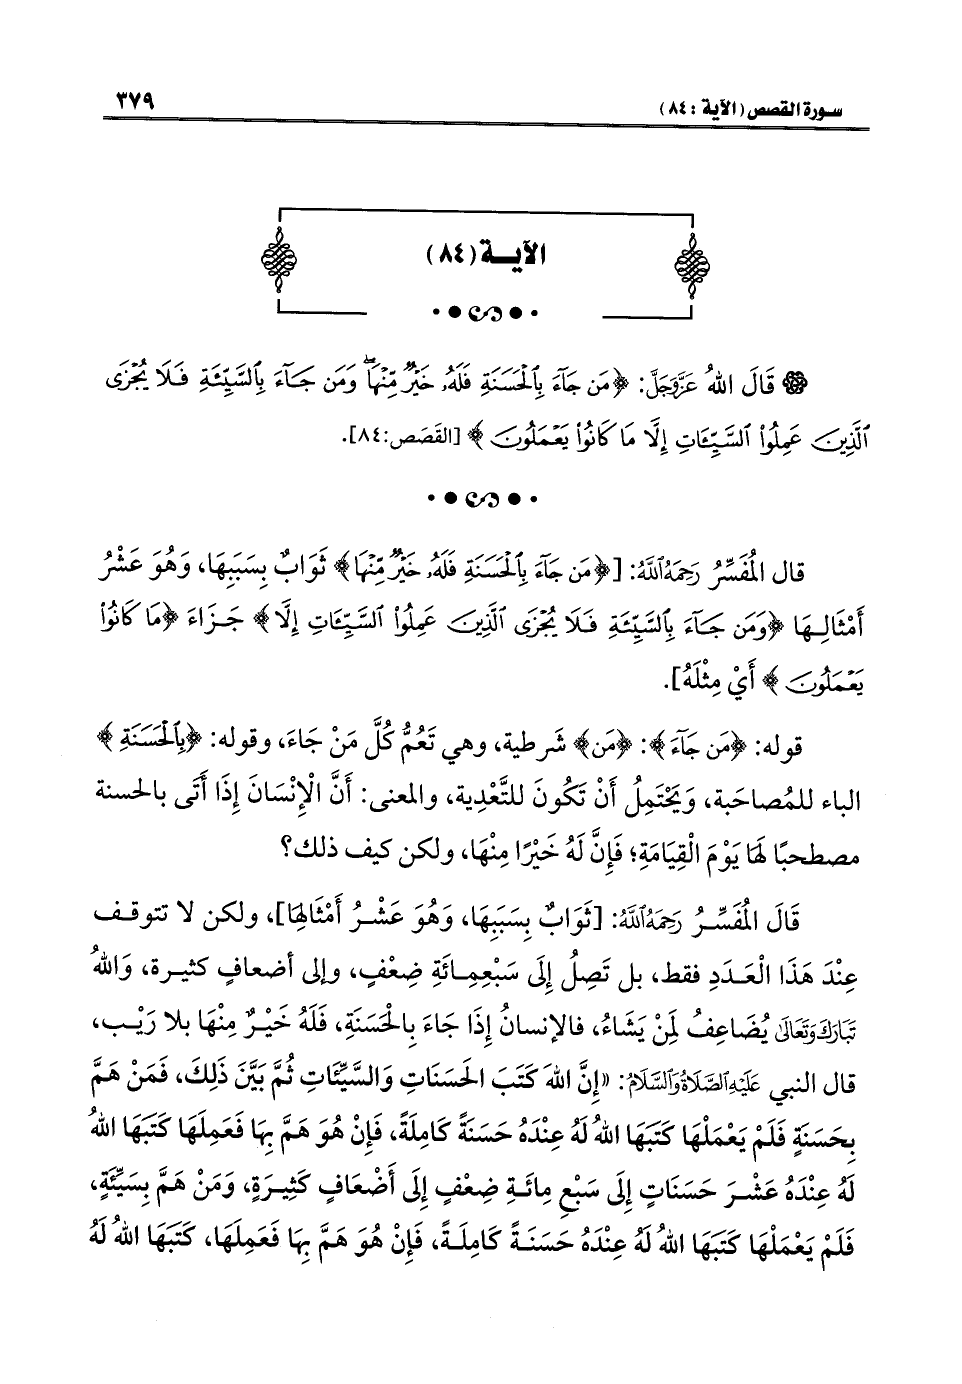 سورة القصص (الآية : ٨٤)
٣٧٩
الآية (٨٤)
قَالَ اللهُ عَزَّوَجَلَّ: ﴿مَن جَآءَ بِٱلْحَسَنَةِ فَلَهُۥ خَيْرٌ مِّنْهَا ۖ وَمَن جَآءَ بِٱلسَّيِّئَةِ فَلَا يُجْزَى
ٱلَّذِينَ عَمِلُوا۟ ٱلسَّيِّـَٔاتِ إِلَّا مَا كَانُوا۟ يَعْمَلُونَ﴾ [القَصَص:٨٤].
قال المُفَسِّرُ رَحِمَهُ اللَّهُ: [﴿مَن جَآءَ بِٱلْحَسَنَةِ فَلَهُۥ خَيْرٌ مِّنْهَا﴾ ثَوَابٌ بِسَبَبِهَا، وَهُوَ عَشْرُ
أَمْثَالِهَا ﴿وَمَن جَآءَ بِٱلسَّيِّئَةِ فَلَا يُجْزَى ٱلَّذِينَ عَمِلُوا۟ ٱلسَّيِّـَٔاتِ إِلَّا﴾ جَزَاءَ ﴿مَا كَانُوا۟
يَعْمَلُونَ﴾ أَيْ مِثْلَهُ].
قوله: ﴿مَن جَآءَ﴾: ﴿مَن﴾ شرطية، وهي تَعُمُّ كُلَّ مَنْ جَاءَ، وقوله: ﴿بِٱلْحَسَنَةِ﴾
الباء للمُصاحبة، وَيَحْتَمِلُ أَنْ تَكُونَ للتَّعْدِية، والمعنى: أَنَّ الْإِنْسَانَ إِذَا أَتَى بالحسنة
مصطحبًا لَهَا يَوْمَ الْقِيَامَةِ؛ فَإِنَّ لَهُ خَيْرًا مِنْهَا، ولكن كيف ذلك؟
قَالَ المُفَسِّرُ رَحِمَهُ اللَّهُ: [ثَوَابٌ بِسَبَبِهَا، وَهُوَ عَشْرُ أَمْثَالِهَا]، ولكن لا تتوقف
عِنْدَ هَذَا الْعَدَدِ فقط، بل تَصِلُ إِلَى سَبْعِمِائَةِ ضِعْفٍ، وإلى أضعافٍ كثيرة، وَاللهُ
تَبَارَكَ وَتَعَالَى يُضَاعِفُ لِمَنْ يَشَاءُ، فالإنسانُ إِذَا جَاءَ بِالْحَسَنَةِ، فَلَهُ خَيْرٌ مِنْهَا بلا رَيْب،
قال النبي عَلَيْهِ الصَّلَاةُ وَالسَّلَامُ: «إِنَّ اللهَ كَتَبَ الحَسَنَاتِ وَالسَّيِّئَاتِ ثُمَّ بَيَّنَ ذَلِكَ، فَمَنْ هَمَّ
بِحَسَنَةٍ فَلَمْ يَعْمَلْهَا كَتَبَهَا اللهُ لَهُ عِنْدَهُ حَسَنَةً كَامِلَةً، فَإِنْ هُوَ هَمَّ بِهَا فَعَمِلَهَا كَتَبَهَا اللهُ
لَهُ عِنْدَهُ عَشْرَ حَسَنَاتٍ إِلَى سَبْعِ مِائَةِ ضِعْفٍ إِلَى أَضْعَافٍ كَثِيرَةٍ، وَمَنْ هَمَّ بِسَيِّئَةٍ،
فَلَمْ يَعْمَلْهَا كَتَبَهَا اللهُ لَهُ عِنْدَهُ حَسَنَةً كَامِلَةً، فَإِنْ هُوَ هَمَّ بِهَا فَعَمِلَهَا، كَتَبَهَا اللهُ لَهُ